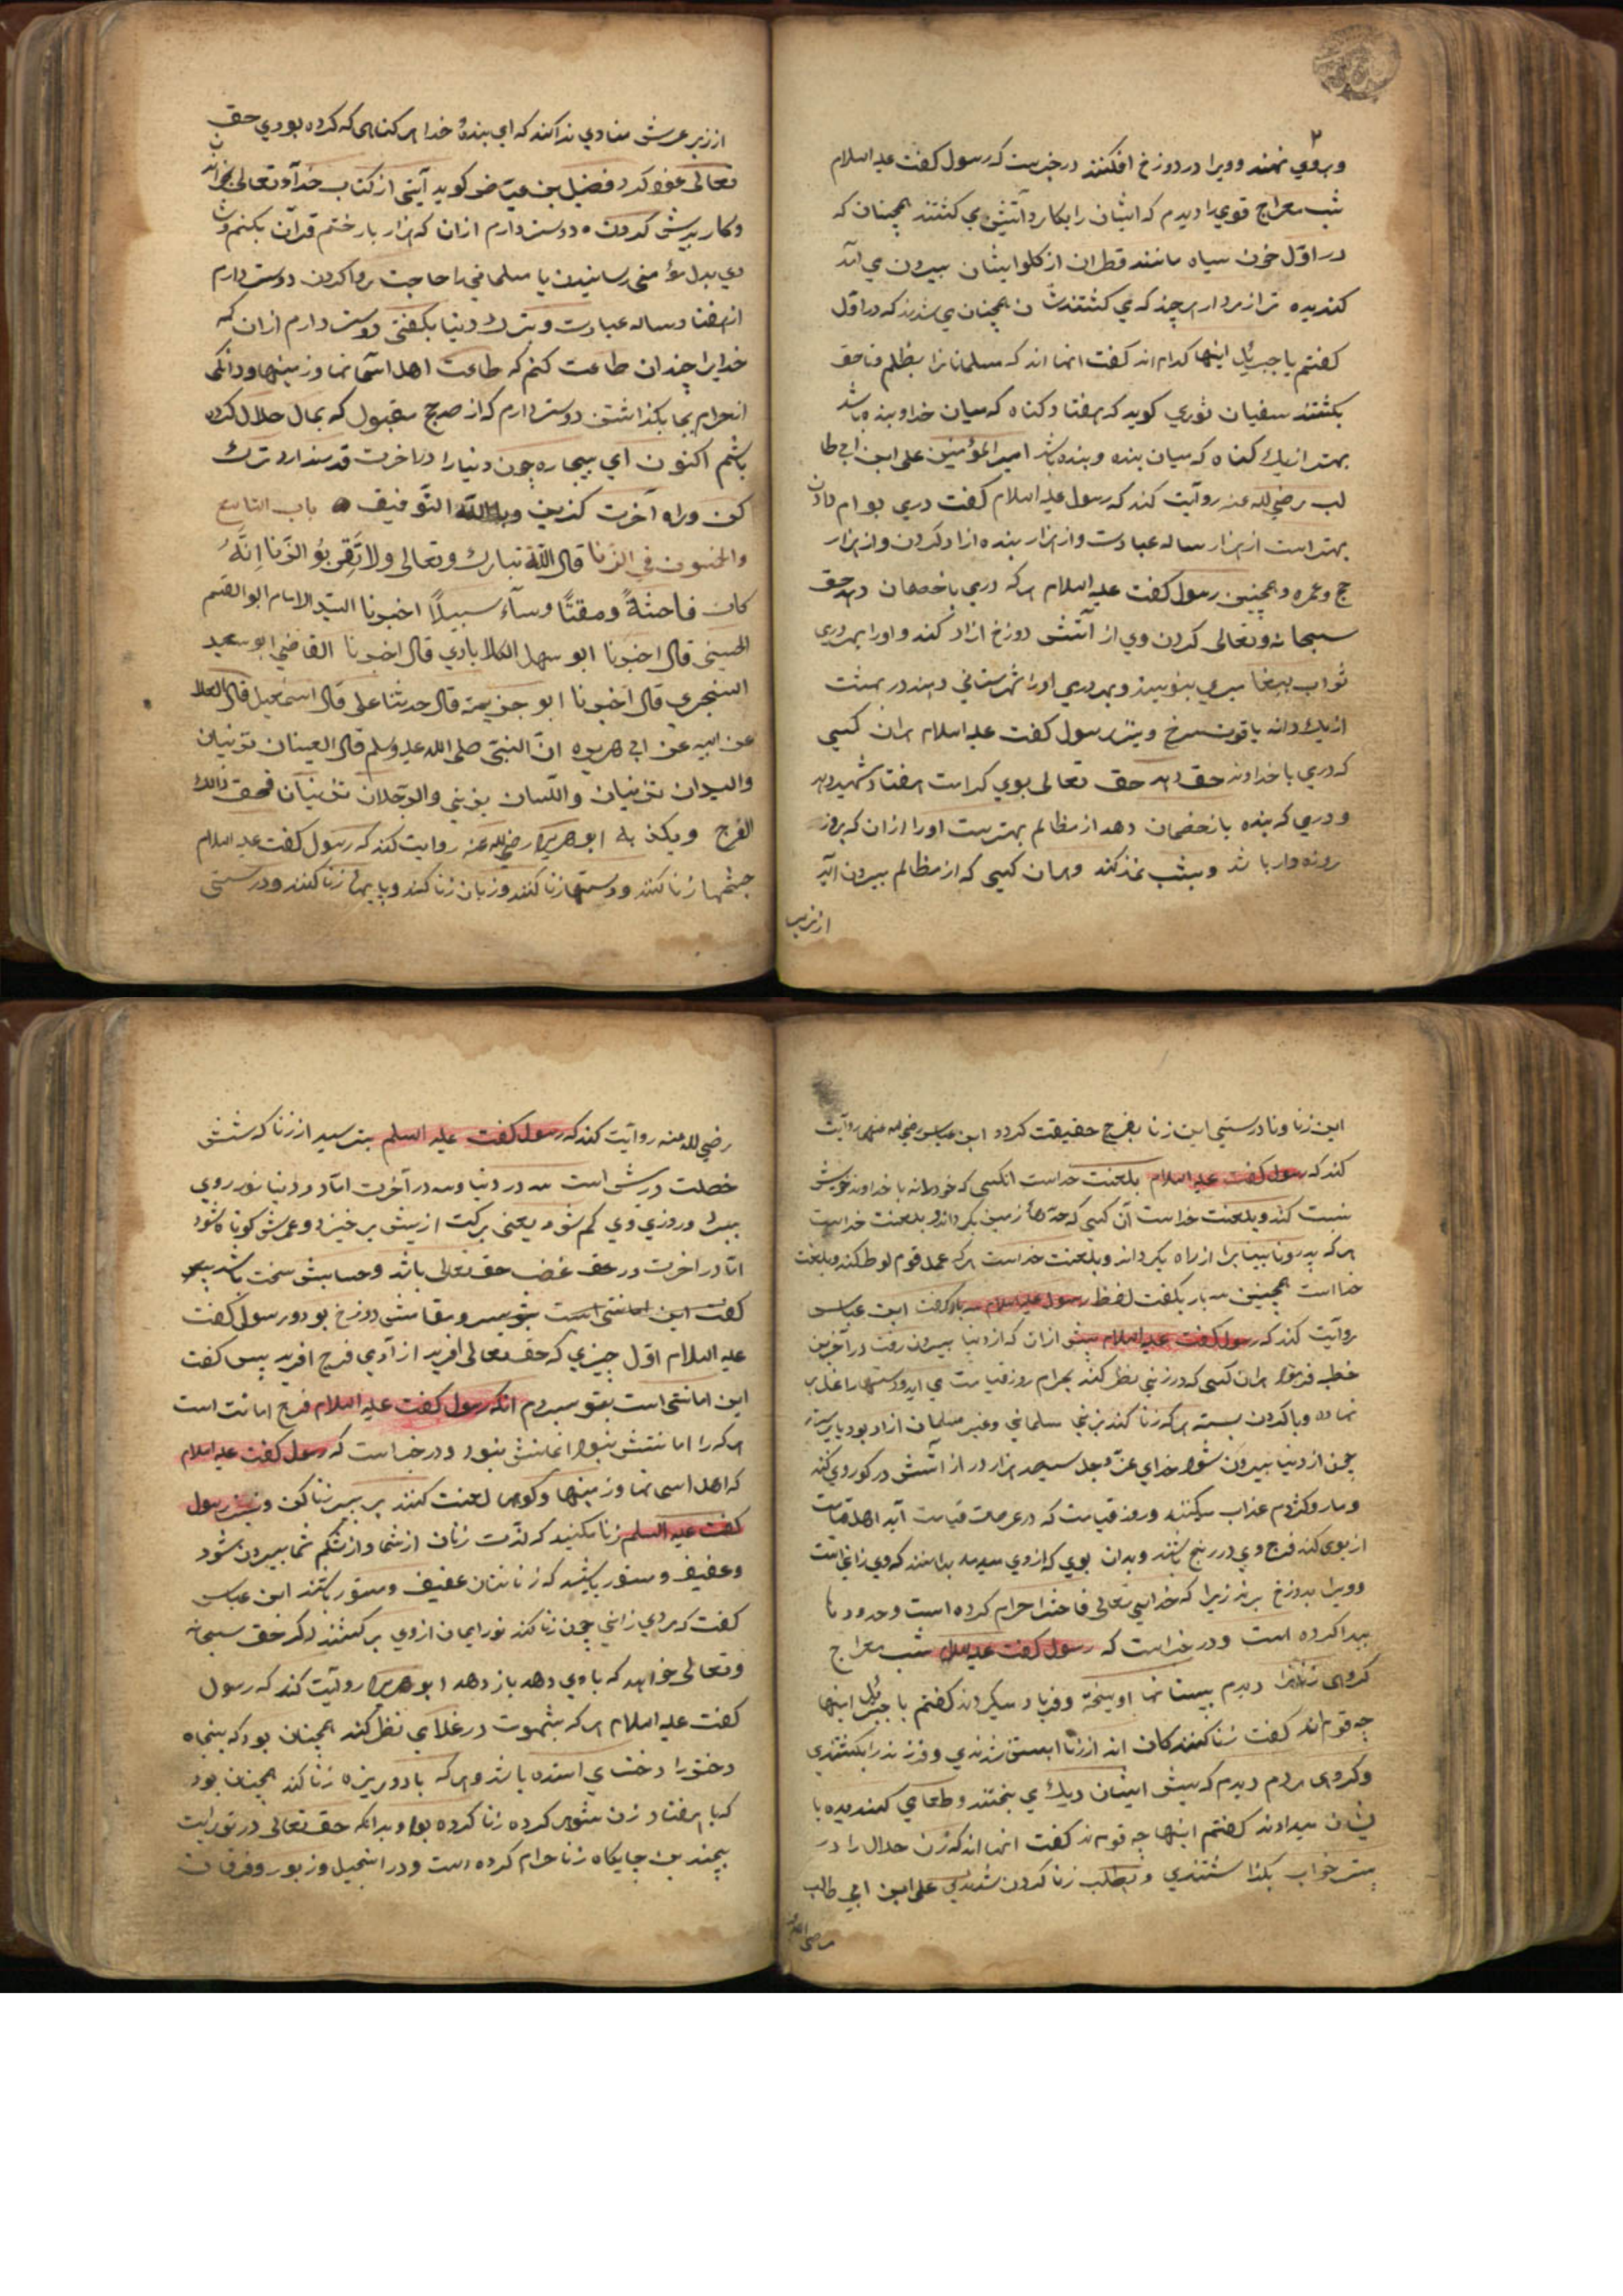 وبروي نهند وويرا در دوزخ افكنند در خبرست كه رسول كفت عليه السلام
شب معراج قومي را ديدم كه ايشان را بكارد آتشين مي كشتند همچنان كه
در اول خون سياه مانند قطران از كلو ايشان بيرون مي آمد
كنديده تر از مردار هر چند كه مي كشتندشان همچنان مي شدند كه در اول
كفتم يا جبريل اينها كدام اند كفت انها اند كه مسلمانان را بظلم وناحق
بكشتند سفيان ثوري كويد كه هفتاد كناه كه ميان خدا وبنده باشد
بهتر از يك كناه كه ميان بنده وبنده باشد امير المؤمنين علي ابن ابي طا
لب رضي الله عنه روايت كند كه رسول عليه السلام كفت درمي بوام دادن
بهتر است از هزار ساله عبادت واز هزار بنده ازاد كردن واز هزار
حج وعمره وهمچنين رسول كفت عليه السلام هر كه درمي با خصمان دهد حق
سبحانه وتعالى كردن وي از آتش دوزخ ازاد كند واورا بهر درمي
ثواب پيغامبري بنويسند وبهر درمي اورا شهرستاني دهند در بهشت
از يك دانه ياقوت سرخ ونيز رسول كفت عليه السلام هر ان كسي
كه درمي با خداوند حق دهد حق تعالى بوي كرامت هفتاد شهيد دهد
ودرمي كه بنده با خصمان دهد از مظالم بهترست اورا از ان كه بروز
روزه دار باشد وبشب نماز كند وهر ان كسي كه از مظالم بيرون آيد
از زير
از زير عرش منادي ندا كند كه اي بنده خدا هر كناهى كه كرده بودي حق
تعالى عفو كرد فضيل بن عياض كويد آيتي از كتاب خداى تعالى خواندن
وكار بدش كردن دوستر دارم ازان كه هزار بار ختم قرآن بكنم وشا
دي بدل مؤمني رسانيدن يا مسلماني را حاجت روا كردن دوستر دارم
از هفتاد ساله عبادت وبترك دنيا بكفتن دوستر دارم از ان كه
خدايرا چندان طاعت كنم كه طاعت اهل آسمانها وزمينها ودانكى
از حرام بجا بكذاشتن دوستر دارم كه از صد حج مقبول كه بمال حلال كرده
باشم اكنون اي بيچاره چون دنيا را در اخرت قدر ندارد ترك
كن وراه آخرت كزين وبالله التوفيق باب التاسع
والخمسون في الزنا قال الله تبارك وتعالى ولا تقربوا الزنا انه
كان فاحشة ومقتا وساء سبيلا اخبرنا السيد الامام ابو القسم
الحسيني قال اخبرنا ابو سهل الكلابادي قال اخبرنا القاضي ابو سعيد
السنجري قال اخبرنا ابو خزيمة قال حدثنا علي قال اسمعيل قال العلا
عن ابيه عن ابي هريره ان النبي صلى الله عليه وسلم قال العينان تزنيان
واليدان تزنيان واللسان يزني والرجلان تزنيان فيحقق ذلك
الفرج ويكذبه ابو هريره رضي الله عنه روايت كند كه رسول كفت عليه السلام
چشمها زنا كنند ودستها زنا كنند وزبان زنا كند وپايها زنا كنند ودرستي
اين زنا ونادرستي اين زنا بفرج حقيقت كردد ابن عباس رضي الله عنهما روايت
كند كه رسول كفت عليه السلام بلعنت خداست انكسي كه خودرا نه با خداوند خويش
نسبت كند وبلعنت خداست آن كسي كه حدهاء زمين بكرداند وبلعنت خداست
هر كه پدر ونابينا يرا از راه بكرداند وبلعنت خداست هر كه عمل قوم لوط كند وبلعنت
خدا است همچنين سه بار بكفت لفظ رسول عليه السلام سه بار كفت ابن عباس
روايت كند كه رسول كفت عليه السلام پيش از ان كه از دنيا بيرون رفت در آخرين
خطبه فرمود هر ان كسي كه در زني نظر كند بحرام روز قيامت مي ايد ودستها را غل بر
نهاده وبا كردن بسته هر كه زنا كند بزني مسلماني وغير مسلمان ازاد بود يا پرستار
چون از دنيا بيرون شود خداي عز وجل سيصد هزار در از آتش در كور وي كند
ومار وكژدم عذاب ميكنند وروز قيامت كه در عرصات قيامت آيد اهل قيامت
از بوي كند فرج وي در رنج باشند وبدان بوي كه از وي ميدمد بدانند كه وي زاني است
وويرا بدوزخ برند زيرا كه خداى تعالى فاحشه را حرام كرده است وحدود ها
پيدا كرده است ودر خبر است كه رسول كفت عليه السلام شب معراج
كروهى زنانرا ديدم بپستانها اويخته وفرياد ميكردند كفتم يا جبريل اينها
چه قوم اند كفت زنا كنندكان اند از زنا ابستن شدندي وفرزند را بكشتندي
وكروهى مردم ديدم كه پيش ايشان ديك مي پختند وطعامي كنديده با
يشان ميدادند كفتم اينها چه قوم ند كفت انها اند كه زن حلال را در
بستر خواب بكذاشتندي وبطلب زنا كردن شدندي علي ابن ابي طالب
رضي الله عنه
رضي الله عنه روايت كند كه رسول كفت عليه السلم بترسيد از زنا كه شش
خصلت درش است سه در دنيا وسه در آخرت اما در دنيا نور روي
ببرد وروزي وي كم شود يعني بركت از پيش برخيزد وعمرش كوتاه شود
اما در اخرت در حق غضب حق تعالى باشد وحسابش سخت باشد پس
كفت اين امانتى است بتو سپردم وبقا منش دوزخ بود ورسول كفت
عليه السلام اول چيزي كه حق تعالى افريد از آدمي فرج افريد پس كفت
اين امانتى است بتو سپردم انكه رسول كفت عليه السلام فرج امانت است
هر كه را امانتش نبود ايمانش نبود ودر خبر است كه رسول كفت عليه السلام
كه اهل اسمانها وزمينها وكوهها لعنت كنند بر پير زنا كن ونيز رسول
كفت عليه السلم زنا مكنيد كه لذت زنان از شما واز شكم شما بيرون شود
وعفيف ومستور باشيد كه زنانتان عفيف ومستور باشند ابن عباس
كفت كه مردي زاني چون زنا كند نور ايمان ازوي بركشند اكر حق سبحانه
وتعالى خواهد كه باوي دهد باز دهد ابو هريره روايت كند كه رسول
كفت عليه السلام هر كه بشهوت در غلامي نظر كند همچنان بود كه پنجاه
دختر را دخترى استده باشد وهر كه با دوشيزه زنا كند همچنان بود
كه با هفتاد زن شوى كرده زنا كرده بود وبدانكه حق تعالى در توريت
بچندين جايكاه زنا حرام كرده است ودر انجيل وزبور وفرقان